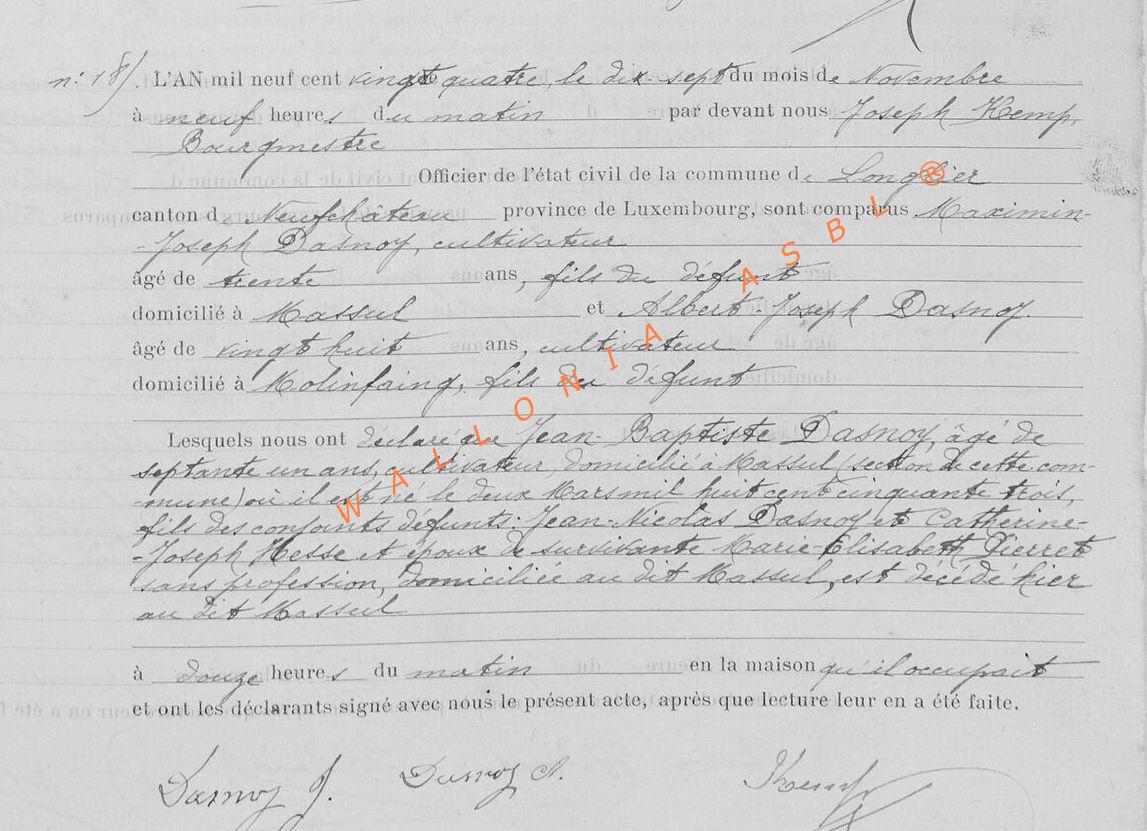 n: 18). L'AN mil neuf cent vingt quatre, le dix sept du mois de Novembre
à neuf heures du matin par devant nous Joseph Kemp,
Bourgmestre
Officier de l'état civil de la commune de Longlier
canton de Neufchâteau province de Luxembourg, sont comparus Maximin-
-Joseph Dasnoy, cultivateur
âgé de trente ans, fils du défunt
domicilié à Massul et Albert-Joseph Dasnoy.
âgé de vingt huit ans, cultivateur
domicilié à Molinfaing, fils du défunt
Lesquels nous ont déclaré que Jean-Baptiste Dasnoy, âgé de
septante un ans, cultivateur, domicilié à Massul (section de cette com-
-mune) où il est né le deux Mars mil huit cent cinquante trois,
fils des conjoints défunts: Jean-Nicolas Dasnoy et Catherine-
-Joseph Hesse et époux de survivante Marie-Elisabeth Pierret
sans profession, domiciliée au dit Massul, est décédé hier
au dit Massul
à douze heures du matin en la maison qu'il occupait
et ont les déclarants signé avec nous le présent acte, après que lecture leur en a été faite.
Dasnoy J. Dasnoy A. JKemp
WALLONIA ASBL ®